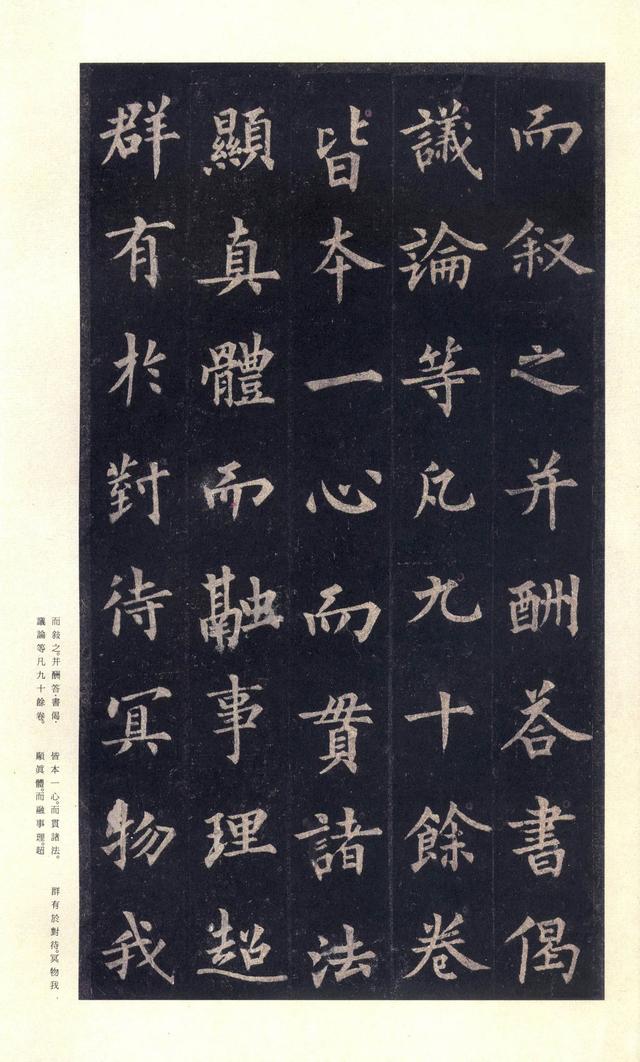 而叙之并酬荅書偈
議論等凡九十餘卷
皆本一心而貫諸法
顯真體而融事理超
群有於對待冥物我
而敍之。并酬答・書偈・
議論等凡九十餘卷。
皆本一心。而貫諸法。
顯眞體。而融事理。超
群有於對待。冥物我・